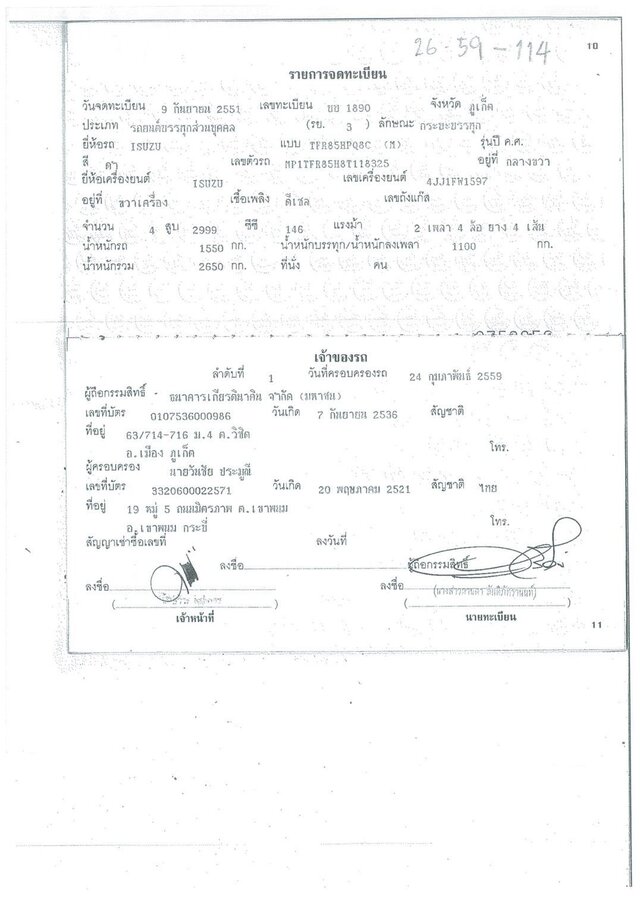 26-59-114
10
รายการจดทะเบียน
วันจดทะเบียน 9 กันยายน 2551 เลขทะเบียน บย 1890 จังหวัด ภูเก็ต
ประเภท รถยนต์บรรทุกส่วนบุคคล (รย. 3 ) ลักษณะ กระบะบรรทุก
ยี่ห้อรถ ISUZU แบบ TFR85HPQ8C (M) รุ่นปี ค.ศ.
สี ดำ เลขตัวรถ MP1TFR85H8T118325 อยู่ที่ กลางขวา
ยี่ห้อเครื่องยนต์ ISUZU เลขเครื่องยนต์ 4JJ1FW1597
อยู่ที่ ขวาเครื่อง เชื้อเพลิง ดีเซล เลขถังแก๊ส
จำนวน 4 สูบ 2999 ซีซี 146 แรงม้า 2 เพลา 4 ล้อ ยาง 4 เส้น
น้ำหนักรถ 1550 กก. น้ำหนักบรรทุก/น้ำหนักลงเพลา 1100 กก.
น้ำหนักรวม 2650 กก. ที่นั่ง คน
เจ้าของรถ
ลำดับที่ 1 วันที่ครอบครองรถ 24 กุมภาพันธ์ 2559
ผู้ถือกรรมสิทธิ์ - ธนาคารเกียรตินาคิน จำกัด (มหาชน)
เลขที่บัตร 0107536000986 วันเกิด 7 กันยายน 2536 สัญชาติ
ที่อยู่ 63/714-716 ม.4 ต.วิชิต
อ.เมือง ภูเก็ต โทร.
ผู้ครอบครอง นายวันชัย ประมูณี
เลขที่บัตร 3320600022571 วันเกิด 20 พฤษภาคม 2521 สัญชาติ ไทย
ที่อยู่ 19 หมู่ 5 ถนนมิตรภาพ ต.เขาพนม
อ.เขาพนม กระบี่ โทร.
สัญญาเช่าซื้อเลขที่ ลงวันที่
ลงชื่อ ผู้ถือกรรมสิทธิ์
ลงชื่อ ลงชื่อ
เจ้าหน้าที่ นายทะเบียน
11